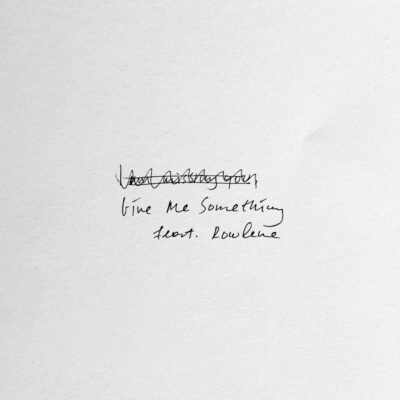 Give Me Something
feat. Rowlene